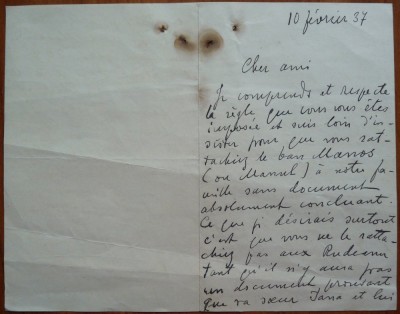 10 février 37
Cher ami
Je comprends et respecte
la règle que vous vous êtes
imposée et suis loin d'in-
sister pour que vous rat-
tachiez le ban Manos
(ou Manuel) à notre fa-
mille sans document
absolument concluant.
Ce que je désirais surtout
c'est que vous ne le ratta-
chiez pas aux Rudeanu
tant qu'il n'y aura pas
un document prouvant
que sa sœur Jana et lui